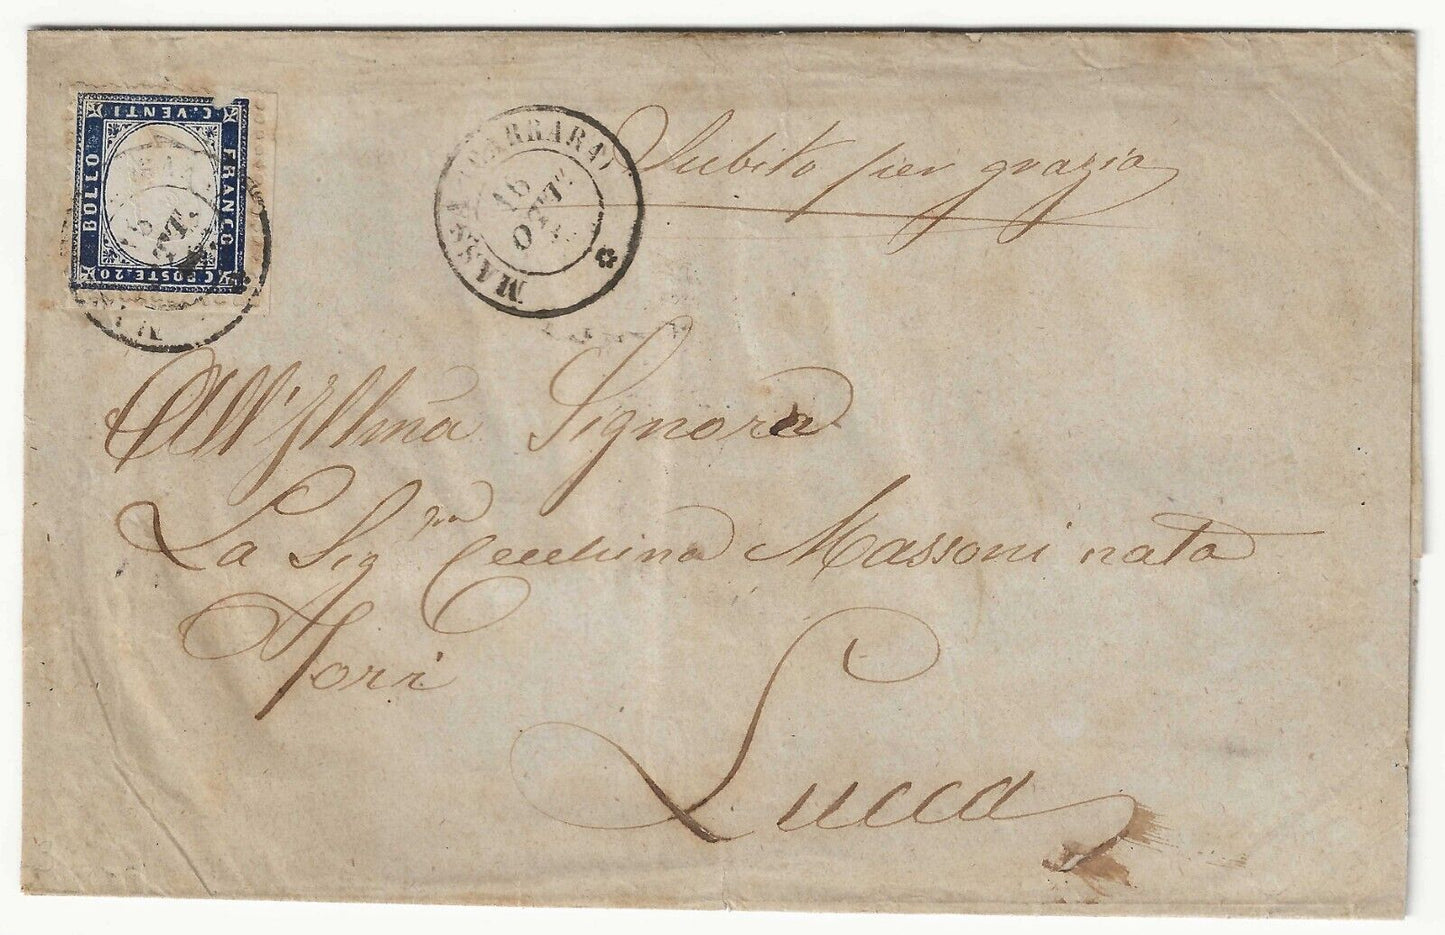 C. VENTI
BOLLO
FRANCO
C. POSTE. 20
MASSA (CARRARA)
16
OTT.
Subito per grazia
All'Illma Signora
La Sigra Cecchina Massoni nata
Tori
Lucca